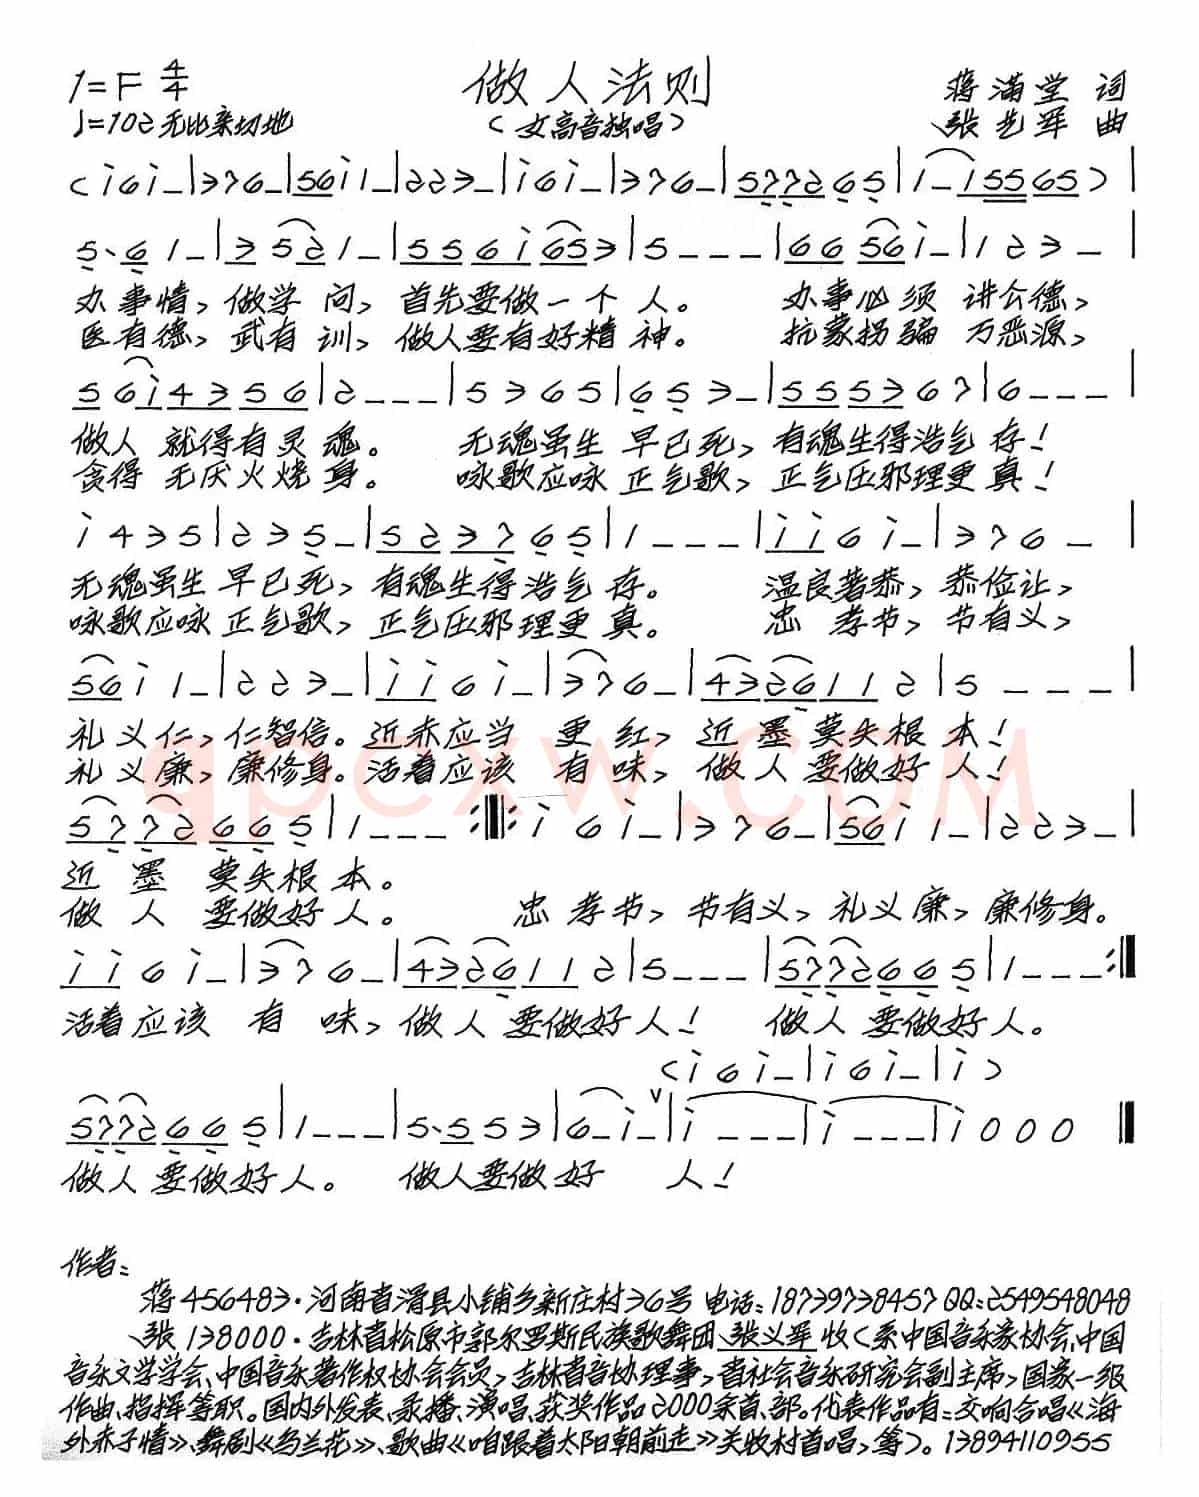 1=F 4/4
做人法则
蒋满堂 词
♩=102 无比亲切地
(女高音独唱)
张艺军 曲
(i 6 i - | 3 7 6 - | 56 i 1 - | 2 2 3 - | i 6 i - | 3 7 6 - | 5772 6 5 | 1 - i 55 65) |
5· 6 1 - | 3 52 1 - | 5 5 6 i 65 3 | 5 - - - | 66 56 i - | 1 2 3 - |
办事情,做学 问,首先要做一个人。 办事必须 讲公德,
医有德,武有训,做人要有好精神。 坑蒙拐骗 万恶源,
5 6 i 4 3 5 6 | 2 - - - | 5 3 6 5 | 6 5 3 - | 5 5 5 3 6 7 | 6 - - - |
做人 就得有灵魂。 无魂虽生 早已死,有魂生得浩气存!
贪得 无厌火烧身。 咏歌应咏 正气歌,正气压邪理更真!
i 4 3 5 | 2 3 5 - | 5 2 3 7 6 5 | 1 - - - | i i 6 i - | 3 7 6 - |
无魂虽生 早已死,有魂生得浩气存。 温良著恭,恭俭让,
咏歌应咏 正气歌,正气压邪理更真。 忠 孝节,节有义,
56 i 1 - | 2 2 3 - | i i 6 i - | 3 7 6 - | 43 26 1 1 2 | 5 - - - |
礼义仁,仁智信。近赤应当 更红,近墨莫失根本!
礼义廉,廉修身。活着应该 有味,做人要做好人!
57 72 6 6 5 | 1 - - - :‖: i 6 i - | 3 7 6 - | 56 i 1 - | 2 2 3 - |
近墨 莫失根本。
做人 要做好人。 忠孝节,节有义,礼义廉,廉修身。
i i 6 i - | 3 7 6 - | 43 26 1 1 2 | 5 - - - | 57 72 6 6 5 | 1 - - - :‖
活着应该 有味,做人要做好人! 做人要做好人。
(i 6 i - | i 6 i - | i)
57 72 6 6 5 | 1 - - - | 5· 5 5 3 | 6 - i - ∨ | i - - - | i - - - | i 0 0 0 ‖
做人要做好人。 做人要做好 人!
作者:
蒋456483·河南省滑县小铺乡新庄村36号 电话:18739738457 QQ:2549548048
张138000·吉林省松原市郭尔罗斯民族歌舞团张义军收(系中国音乐家协会、中国
音乐文学学会、中国音乐著作权协会会员,吉林省音协理事,省社会音乐研究会副主席,国家一级
作曲、指挥等职。国内外发表、录播、演唱、获奖作品2000余首、部。代表作品有:交响合唱《海
外赤子情》、舞剧《乌兰花》、歌曲《咱跟着太阳朝前走》关牧村首唱,等)。13894110955
qpcxw.com